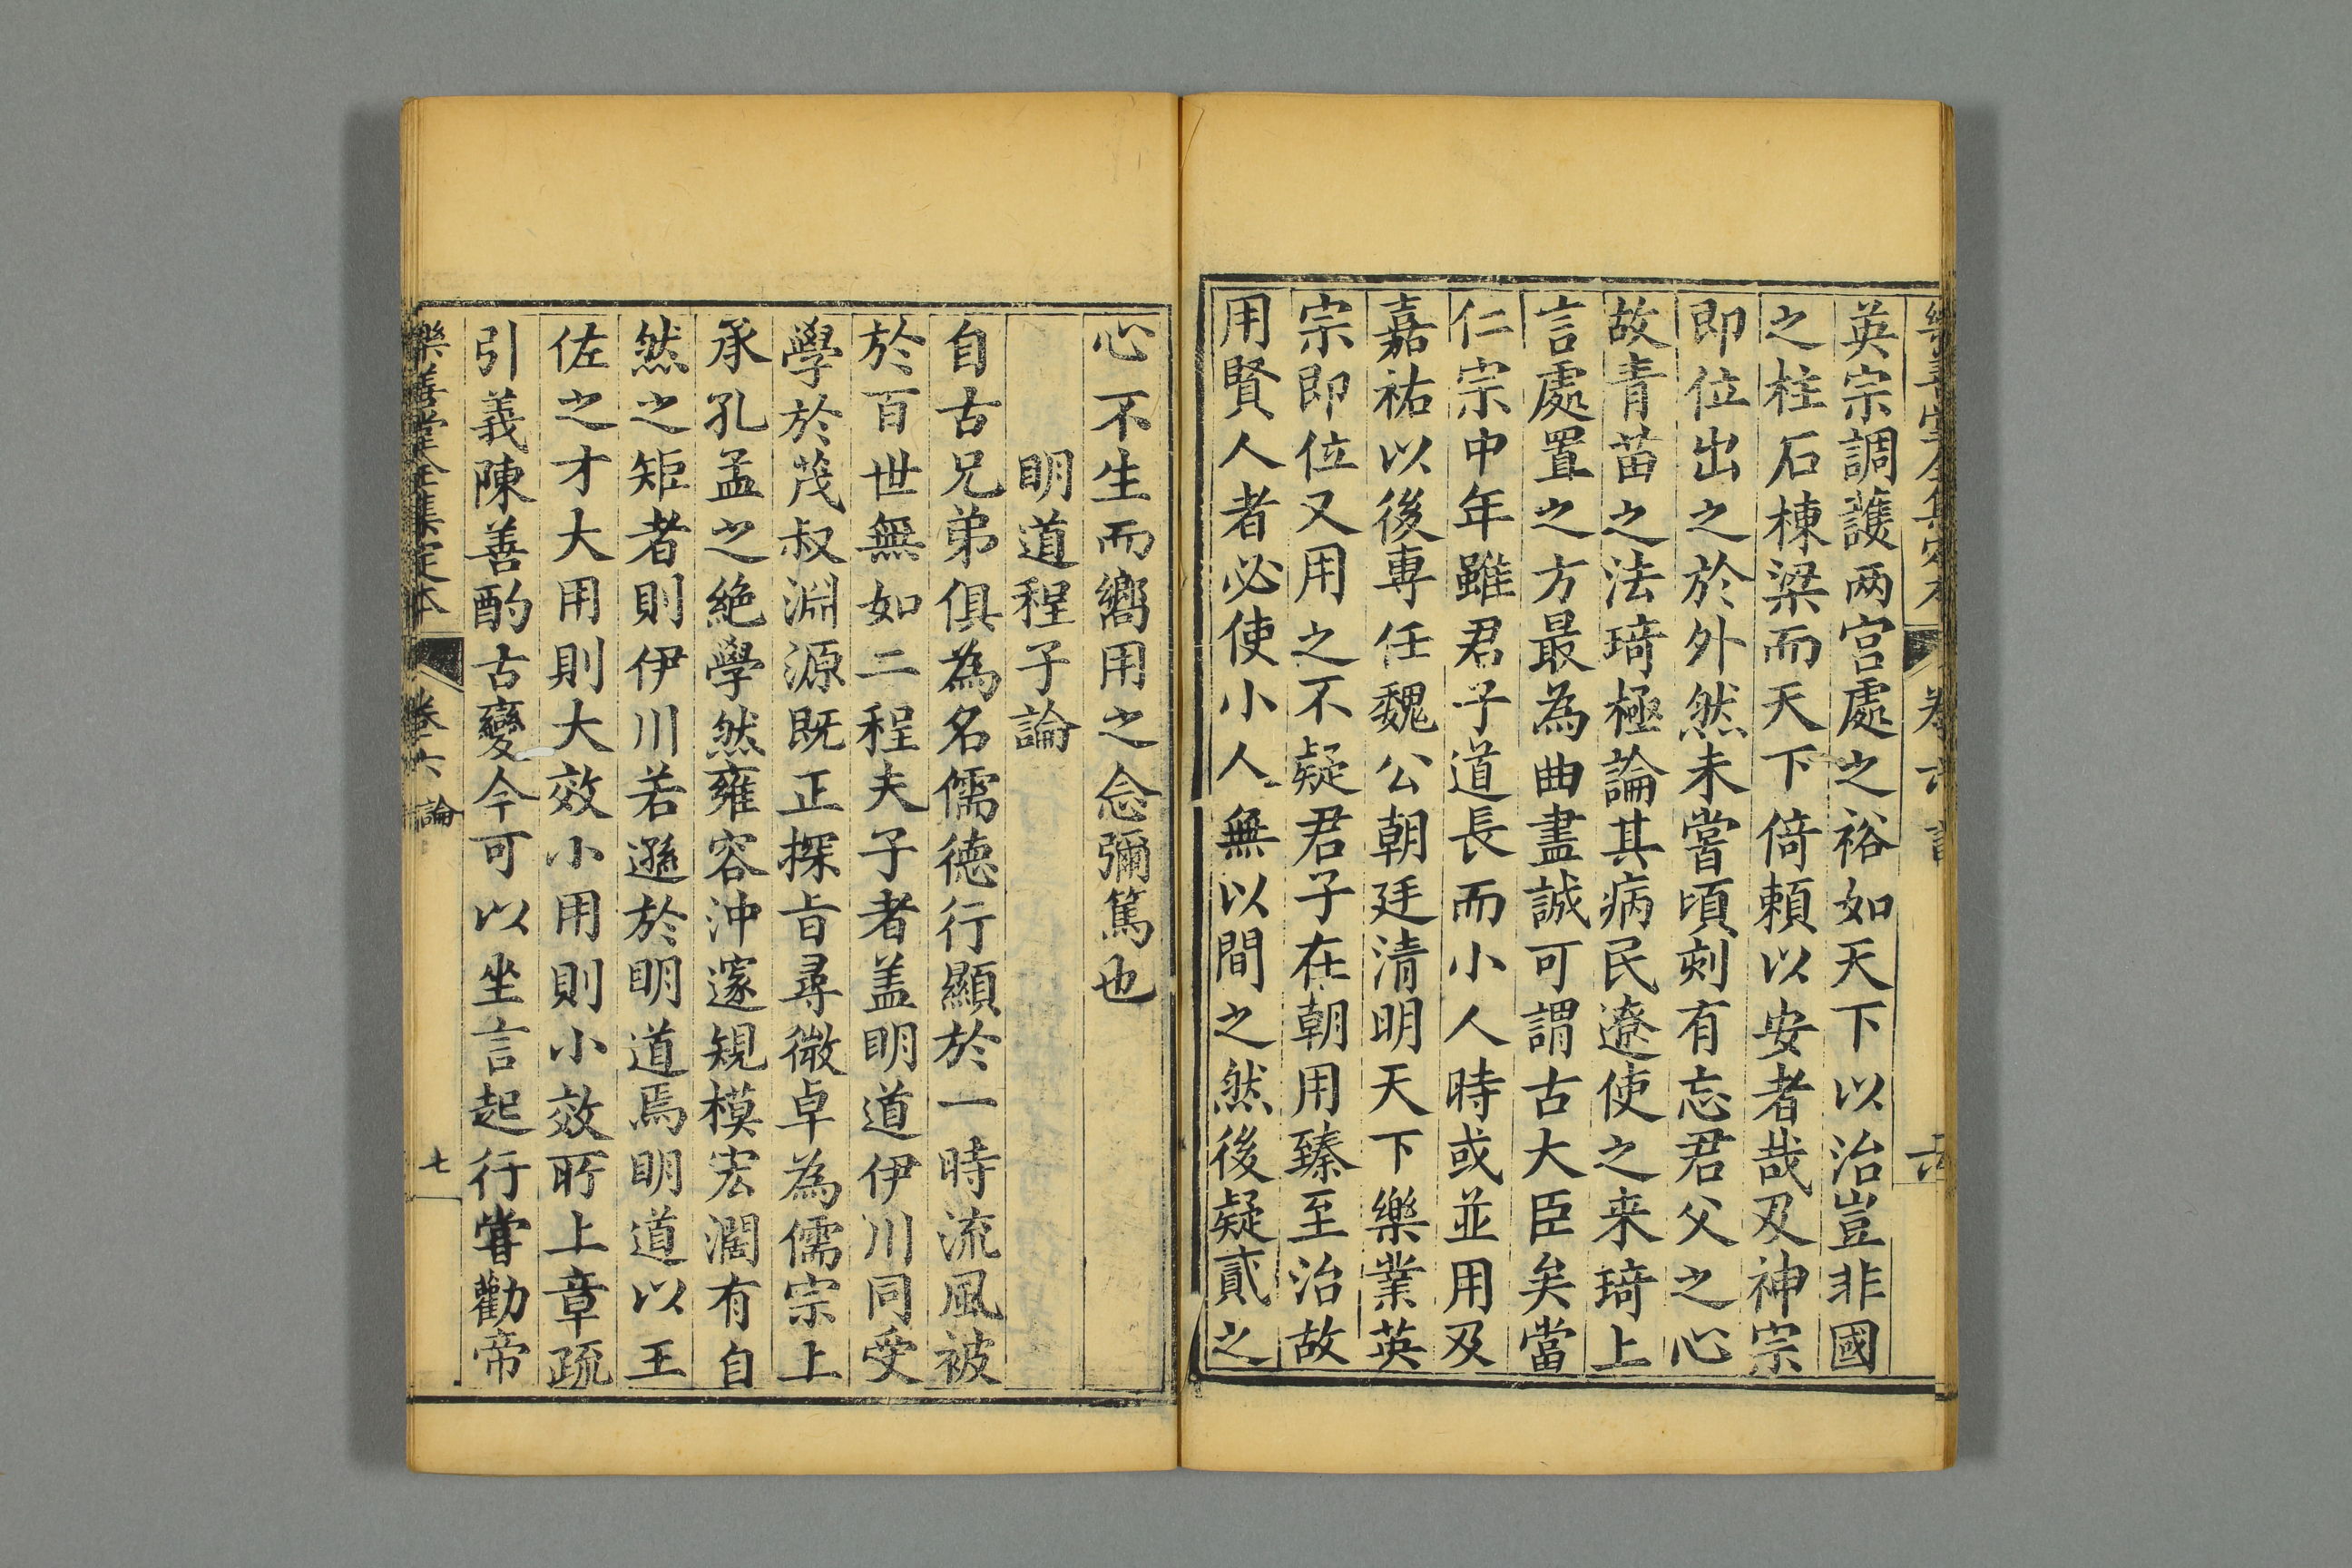 樂善堂全集定本 卷六 論 六
英宗調護兩宮處之裕如天下以治豈非國
之柱石棟梁而天下倚賴以安者哉及神宗
即位出之於外然未嘗頃刻有忘君父之心
故青苗之法琦極論其病民遼使之来琦上
言處置之方最為曲盡誠可謂古大臣矣當
仁宗中年雖君子道長而小人時或並用及
嘉祐以後專任魏公朝廷清明天下樂業英
宗即位又用之不疑君子在朝用臻至治故
用賢人者必使小人無以間之然後疑貳之
心不生而嚮用之念彌篤也
明道程子論
自古兄弟俱為名儒徳行顯於一時流風被
於百世無如二程夫子者盖明道伊川同受
學於茂叔淵源既正探㫖尋微卓為儒宗上
承孔孟之絶學然雍容沖邃規模宏濶有自
然之矩者則伊川若遜於明道焉明道以王
佐之才大用則大效小用則小效所上章疏
引義陳善酌古變今可以坐言起行嘗勸帝
樂善堂全集定本 卷六 論 七